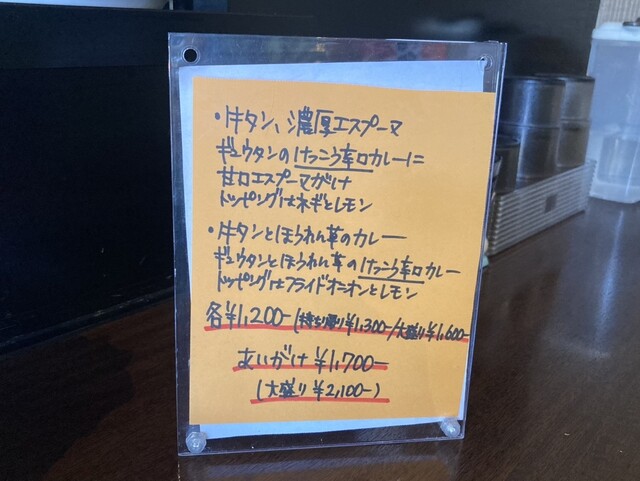 ・牛タン、濃厚エスプーマ
ギュウタンのけっこう辛口カレーに
甘口エスプーマがけ
トッピングはネギとレモン
・牛タンとほうれん草のカレー
ギュウタンとほうれん草のけっこう辛口カレー
トッピングはフライドオニオンとレモン
各¥1,200-(持ち帰り¥1,300-/大盛り¥1,600-
あいがけ ¥1,700-
(大盛り ¥2,100-)